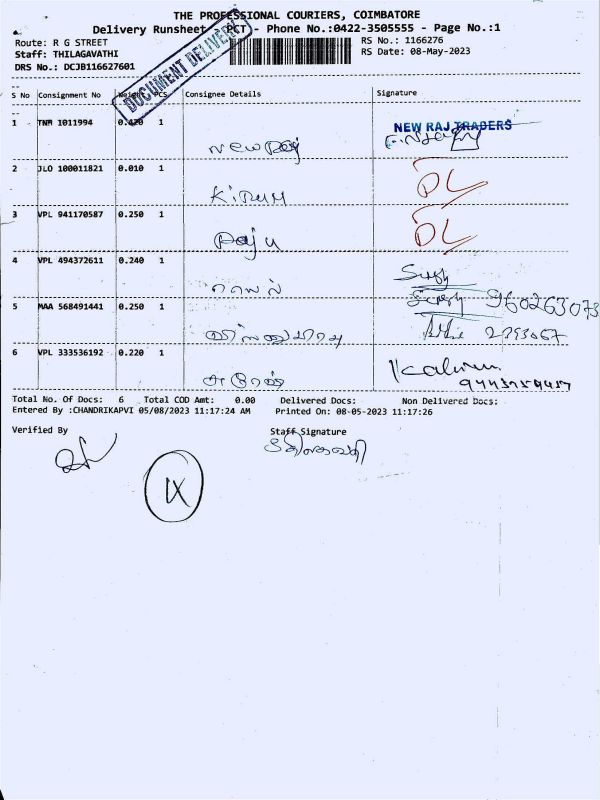 THE PROFESSIONAL COURIERS, COIMBATORE
Delivery Runsheet (PCT) - Phone No.:0422-3505555 - Page No.:1
Route: R G STREET
RS No.: 1166276
Staff: THILAGAVATHI
RS Date: 08-May-2023
DRS No.: DCJB116627601
DOCUMENT DELIVERY
S No Consignment No Weight PCS Consignee Details Signature
1 TNM 1011994 0.420 1
NEW RAJ TRADERS
New Raj
2 JLO 100011821 0.010 1
DL
Kirum
3 VPL 941170587 0.250 1
DL
Raju
4 VPL 494372611 0.240 1
5 MAA 568491441 0.250 1
6 VPL 333536192 0.220 1
Total No. Of Docs: 6 Total COD Amt: 0.00 Delivered Docs: Non Delivered Docs:
Entered By :CHANDRIKAPVI 05/08/2023 11:17:24 AM Printed On: 08-05-2023 11:17:26
Verified By Staff Signature
IX